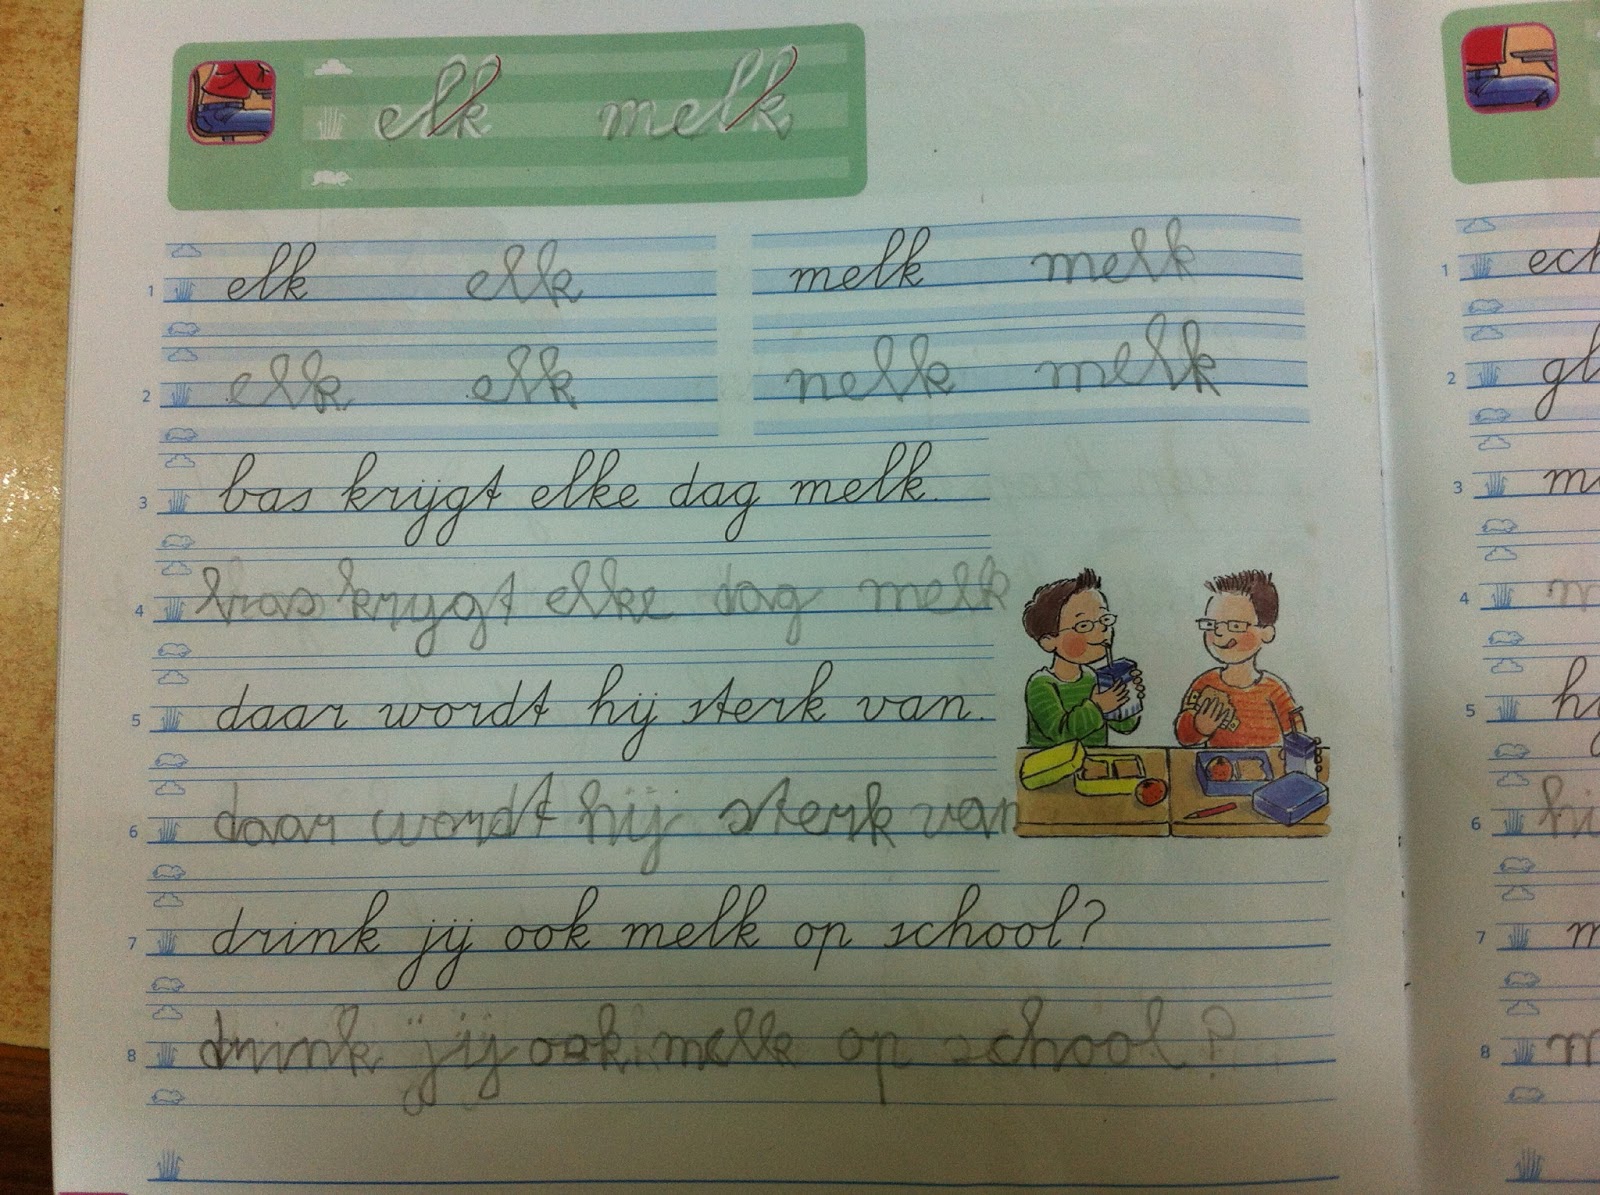 elk melk
1 elk elk melk melk
2 elk elk nelk melk
3 bas krijgt elke dag melk.
4 bas krygt elke dag melk
5 daar wordt hij sterk van.
6 daar wordt hij sterk van
7 drink jij ook melk op school?
8 drink jij ook melk op school?
1 ech
2 gl
3 m
4 m
5 h
6 hi
7 m
8 m